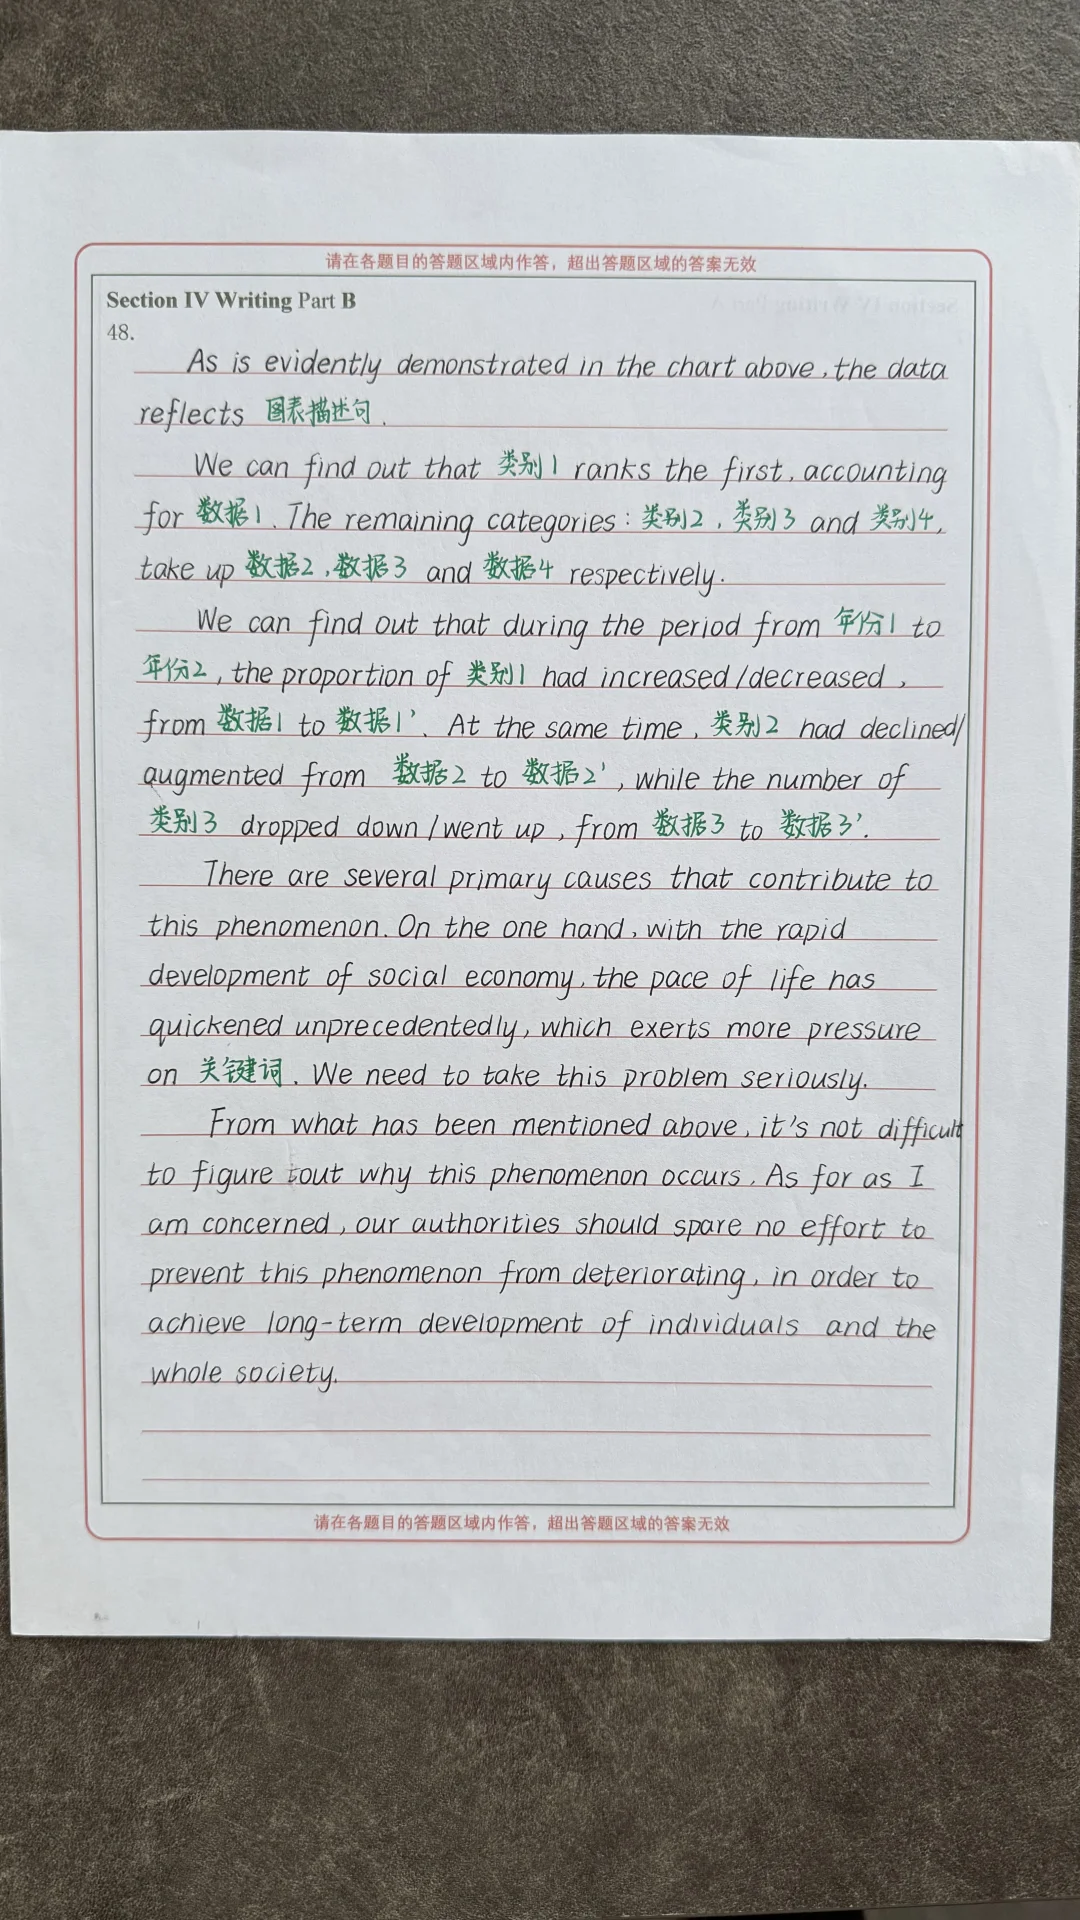 请在各题目的答题区域内作答，超出答题区域的答案无效
Section IV Writing Part B
48.
As is evidently demonstrated in the chart above, the data
reflects 图表描述句.
We can find out that 类别1 ranks the first, accounting
for 数据1. The remaining categories: 类别2, 类别3 and 类别4,
take up 数据2, 数据3 and 数据4 respectively.
We can find out that during the period from 年份1 to
年份2, the proportion of 类别1 had increased/decreased,
from 数据1 to 数据1'. At the same time, 类别2 had declined/
augmented from 数据2 to 数据2', while the number of
类别3 dropped down/went up, from 数据3 to 数据3'.
There are several primary causes that contribute to
this phenomenon. On the one hand, with the rapid
development of social economy, the pace of life has
quickened unprecedentedly, which exerts more pressure
on 关键词. We need to take this problem seriously.
From what has been mentioned above, it's not difficult
to figure out why this phenomenon occurs. As for as I
am concerned, our authorities should spare no effort to
prevent this phenomenon from deteriorating, in order to
achieve long-term development of individuals and the
whole society.
请在各题目的答题区域内作答，超出答题区域的答案无效